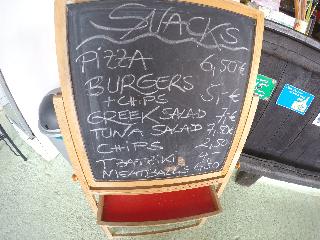 SNACKS
PIZZA 6,50€
BURGERS
+ CHIPS 5,-€
GREEK SALAD 7,-€
TUNA SALAD 7,50€
CHIPS 2,50
TZATZIKI
MEATBALLS 4,50